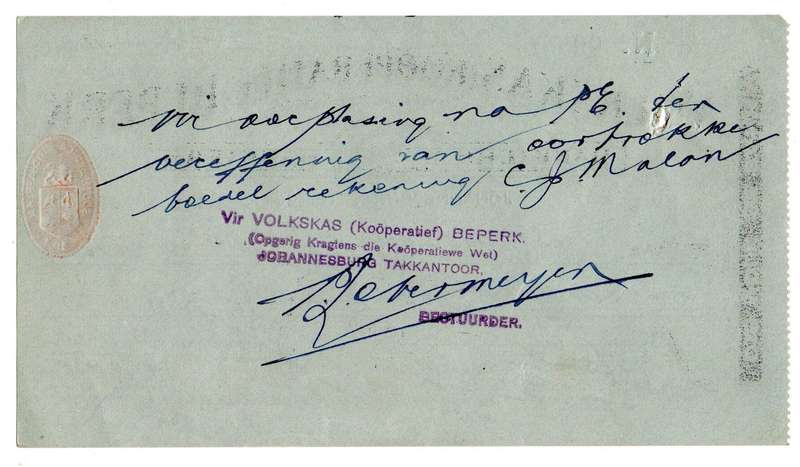 vir toepassing na P.E. ter
vereffening van oortrokke
boedel rekening C. J. Malan
Vir VOLKSKAS (Koöperatief) BEPERK.
(Opgerig Kragtens die Koöperatiewe Wet)
JOHANNESBURG TAKKANTOOR.
BESTUURDER.